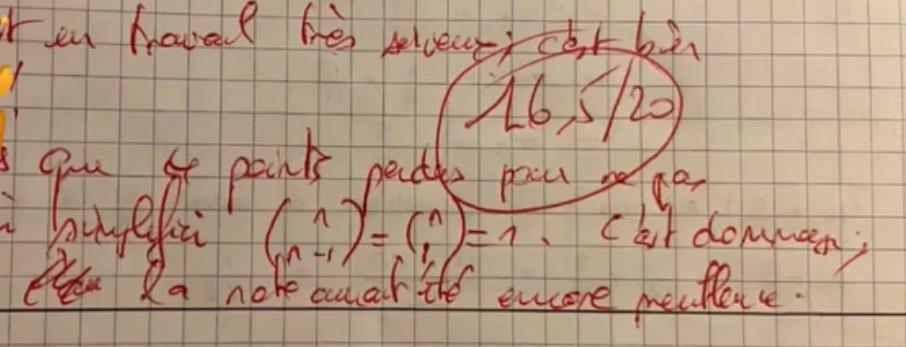 en travail très sérieux ; c'est bien
16,5/20
que de points perdus pour ne pas
simplifié (n n-1) = (n 1) = 1. C'est dommage ;
la note aurait été encore meilleure.